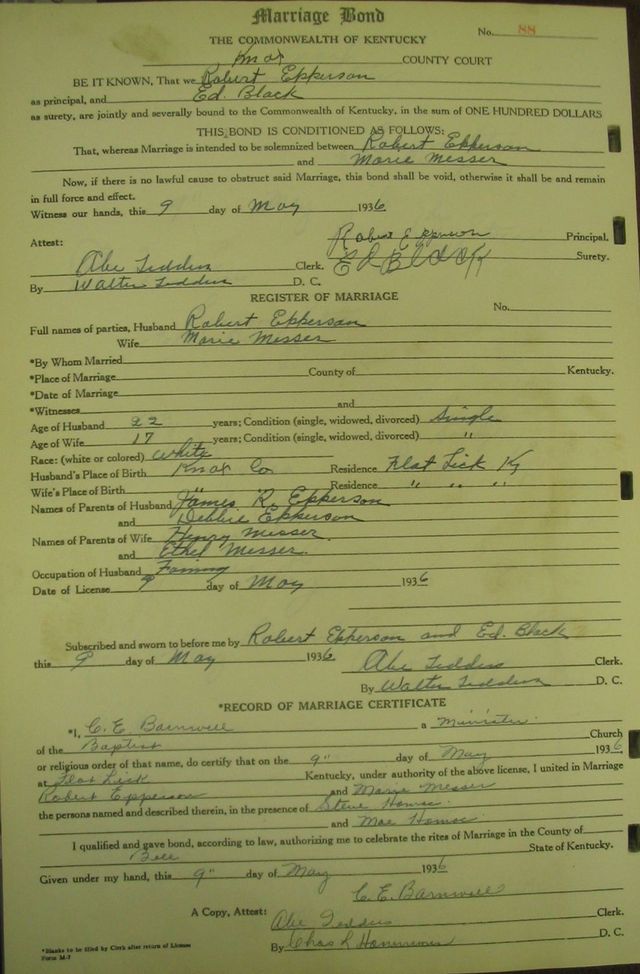 Marriage Bond
No. 88
THE COMMONWEALTH OF KENTUCKY
Knox COUNTY COURT
BE IT KNOWN, That we Robert Epperson
as principal, and Ed. Black
as surety, are jointly and severally bound to the Commonwealth of Kentucky, in the sum of ONE HUNDRED DOLLARS
THIS BOND IS CONDITIONED AS FOLLOWS:
That, whereas Marriage is intended to be solemnized between Robert Epperson
and Marie Messer
Now, if there is no lawful cause to obstruct said Marriage, this bond shall be void, otherwise it shall be and remain
in full force and effect.
Witness our hands, this 9 day of May 1936
Robert Epperson Principal.
Attest:
Abe Clerk. Ed Black Surety.
By Walter D. C.
REGISTER OF MARRIAGE
No.
Full names of parties, Husband Robert Epperson
Wife Marie Messer
*By Whom Married
*Place of Marriage County of Kentucky.
*Date of Marriage
*Witnesses and
Age of Husband 22 years; Condition (single, widowed, divorced) Single
Age of Wife 17 years; Condition (single, widowed, divorced) "
Race: (white or colored) White
Husband's Place of Birth Knox Co Residence Flat Lick Ky
Wife's Place of Birth " Residence " " "
Names of Parents of Husband James R. Epperson
and Debbie Epperson
Names of Parents of Wife Henry Messer.
and Ethel Messer.
Occupation of Husband Faming
Date of License 9 day of May 1936
Subscribed and sworn to before me by Robert Epperson and Ed. Black
this 9 day of May 1936 Abe Clerk.
By Walter D. C.
*RECORD OF MARRIAGE CERTIFICATE
*I, C. E. Barnwell a Minister.
of the Baptist Church
or religious order of that name, do certify that on the 9" day of May 1936
at Flat Lick Kentucky, under authority of the above license, I united in Marriage
Robert Epperson and Marie Messer
the persons named and described therein, in the presence of Steve
and Mae
I qualified and gave bond, according to law, authorizing me to celebrate the rites of Marriage in the County of
Bell State of Kentucky.
Given under my hand, this 9" day of May 1936
C. E. Barnwell
A Copy, Attest: Abe Clerk.
By Chas R D. C.
*Blanks to be filled by Clerk after return of License
Form M-7